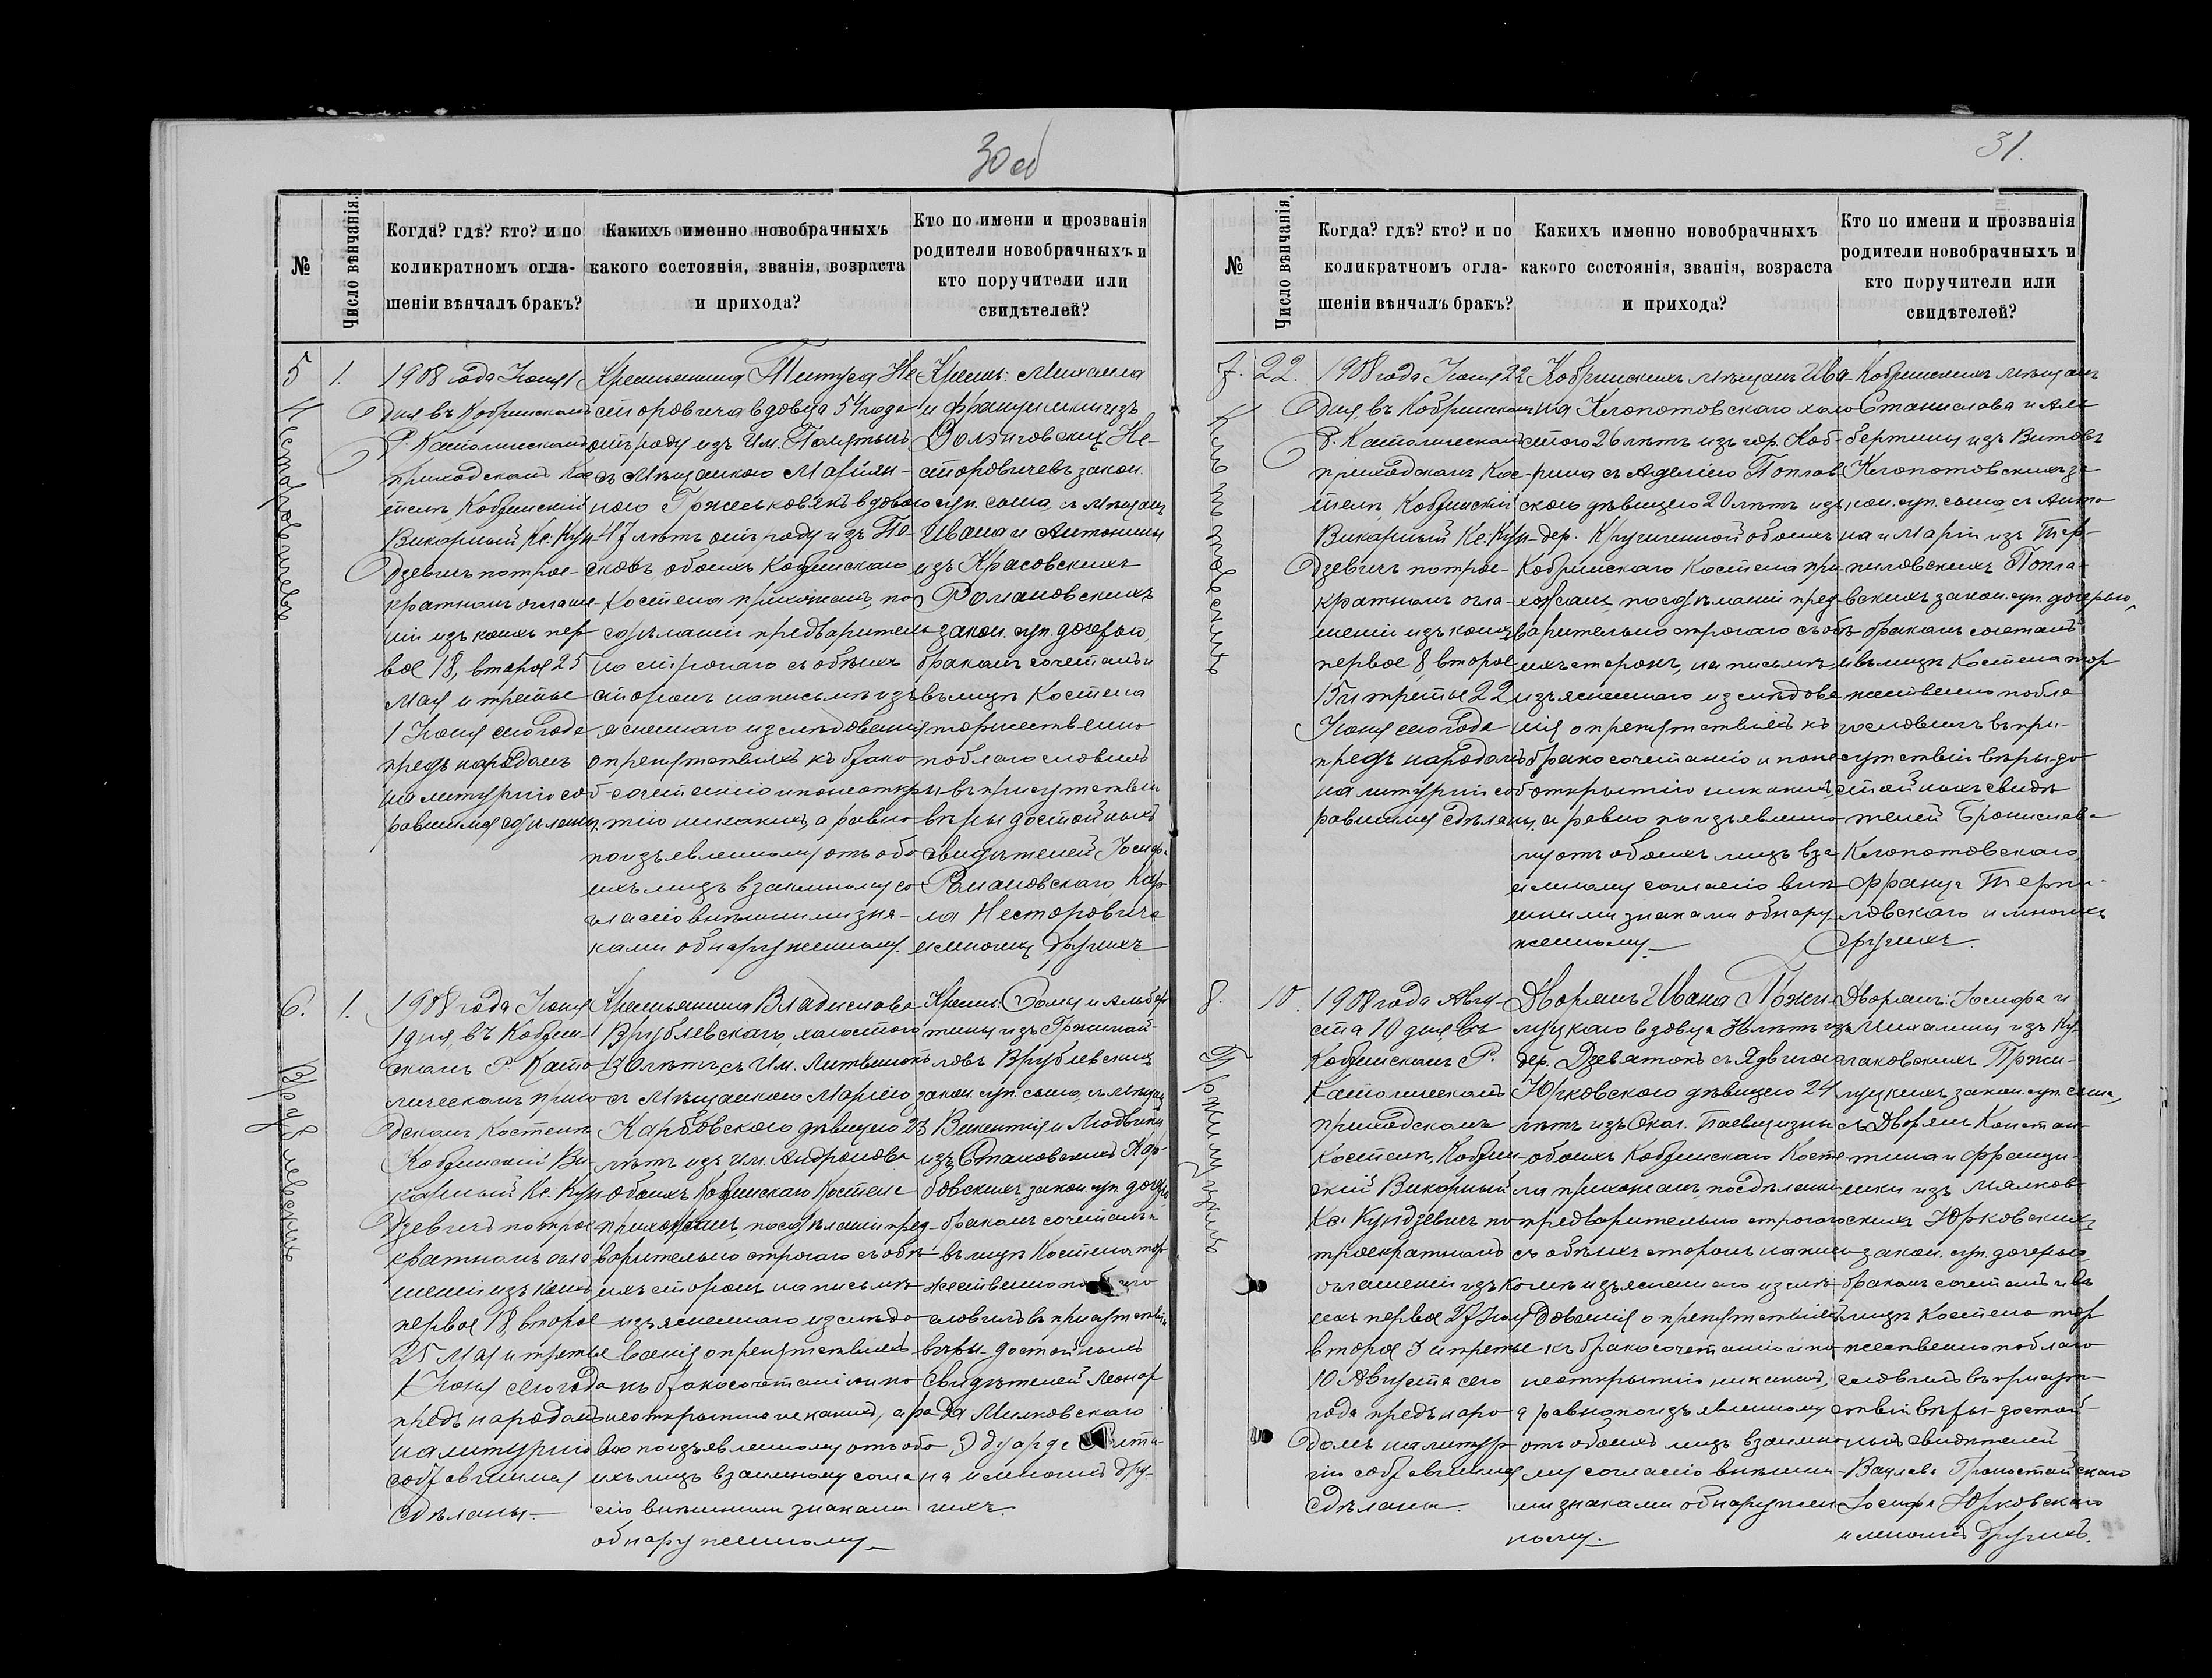 30 об
31.
№
Число вѣнчанія.
Когда? гдѣ? кто? и по
коликратномъ огла-
шеніи вѣнчалъ бракъ?
Какихъ именно новобрачныхъ
какого состоянія, званія, возраста
и прихода?
Кто по имени и прозванія
родители новобрачныхъ и
кто поручители или
свидѣтелей?
5
Несторовичевъ
1.
1908 года Іюня 1
дня въ Кобринском
Р. Католическом
приходском Ко
стелѣ, Кобринскій
Викарный Кс. Кун
дзевичъ по трое-
кратномъ оглаше
ніи изъ коихъ пер
вое 18, второе 25
Мая и третье
1 Іюня сего года
предъ народомъ
на литургію соб
равшимся сдѣланы,
Крестьянина Титуса Не
сторовича вдовца 54 года
отъ роду изъ Им.
съ Мѣщанкою Маріян-
ною вдовою
47 лѣтъ отъ роду изъ Пе-
сковъ, обоихъ Кобринскаго
Костела прихожанъ, по
содѣланіи предваритель
но строгаго съ обѣихъ
сторонъ на письмѣ изъ
ясненнаго изслѣдованія
о препятствіяхъ къ брако
сочетанію и по неоткры-
тію никакихъ, а равно
по изъявленному отъ обо
ихъ лицъ взаимному со
гласію внѣшними зна-
ками обнаруженному.
Крест: Михаила
и Францишки изъ
Не-
сторовичевъ закон.
суп. сына, съ Мѣщан
Ивана и Антонины
изъ Красовскихъ
Романовскихъ
закон. суп. дочерью,
бракомъ сочеталъ и
въ лицѣ Костела
торжественно
поблагословилъ
въ присутствіи
вѣры достойныхъ
свидѣтелей Іосифа
Романовскаго, Кар
ла Несторовича
и многихъ другихъ
6.
Врублевскихъ
1.
1908 года Іюня
1 дня, въ Кобрин-
скомъ Р. Като
лическомъ прихо
дскомъ Костелѣ
Кобринскій Ви-
карный Кс. Кун
дзевичъ по трое
кратномъ огла
шеніи изъ коихъ
первое 18 второе
25 Мая и третье
1 Іюня сего года
предъ народомъ
на литургію
собравшимся
сдѣланы.
Крестьянина Владислава
Врублевскаго, холостого
30 лѣтъ съ Им. Литвинокъ
съ Мѣщанкою Маріею
Карбовскою дѣвицею 23
лѣтъ изъ Им. Андронова
обоихъ Кобринскаго Костела
прихожанъ, по содѣланіи пред-
варительно строгаго съ обѣ-
ихъ сторонъ на письмѣ
изъясненнаго изслѣдо
ванія о препятствіяхъ
къ бракосочетанію и по
неоткрытію никакихъ, а ра
вно по изъявленному отъ обо
ихъ лицъ взаимному согла
сію внѣшними знаками
обнаруженному
Крест. Фомы и Альбер
тины изъ
Врублевскихъ
закон. суп. сына, съ Мѣщан
Викентія и Людвики
изъ Стаховскихъ Кар-
бовскихъ закон. суп. дочерью
бракомъ сочеталъ и
въ лицѣ Костела тор
жественно поблаго
словилъ въ присутствіи
вѣры-достойныхъ
свидѣтелей Леонар
да Милковскаго
Эдуарда
на и многихъ дру-
гихъ.
№
Число вѣнчанія.
Когда? гдѣ? кто? и по
коликратномъ огла-
шеніи вѣнчалъ бракъ?
Какихъ именно новобрачныхъ
какого состоянія, званія, возраста
и прихода?
Кто по имени и прозванія
родители новобрачныхъ и
кто поручители или
свидѣтелей?
7.
Клопотовскихъ
22.
1908 года Іюня 22
дня въ Кобринском
Р. Католическом
приходскомъ Кос-
телѣ, Кобринскій
Викарный Кс. Кун-
дзевичъ по трое-
кратномъ огла-
шеніи изъ коихъ
первое 8, второе
15 и третье 22
Іюня сего года
предъ народомъ
на литургію соб
равшимся сдѣланы,
Кобринскихъ мѣщанъ Ива-
на Клопотовскаго холо
стого 26 лѣтъ изъ гор. Коб-
рина съ Аделією Поплав
скою дѣвицею 20 лѣтъ изъ
дер. обоихъ
Кобринскаго Костела при
хожанъ, по содѣланіи пред
варительно строгаго съ обѣ-
ихъ сторонъ, на письмѣ
изъясненнаго изслѣдова
нія о препятствіяхъ къ
бракосочетанію и по не
открытію никакихъ,
а равно по изъявленно
му отъ обоихъ лицъ вза
имному согласію внѣ
шними знаками обнару
женному
Кобринскихъ мѣщанъ
Станислава и Аль
бертины изъ Витовъ
Клопотовскихъ за
кон. суп. сына, съ Анто
на и Маріи изъ Тер-
пиловскихъ Попла-
вскихъ закон. суп. дочерью,
бракомъ сочеталъ
и въ лицѣ Костела тор
жественно побла
гословилъ въ при-
сутствіи вѣры-до
стойныхъ свидѣ
телей Бронислава
Клопотовскаго,
Франца Терпи-
ловскаго и многихъ
другихъ.
8.
Пржилуцкихъ
10.
1908 года Авгу-
ста 10 дня, въ
Кобринскомъ Р.
Католическомъ
приходскомъ
Костелѣ, Кобрин-
скій Викарный
Кс. Кундзевичъ по
троекратномъ
оглашеніи изъ ко
ихъ первое 27 Іюля
второе 3 и третье
10 Августа сего
года предъ наро
домъ на литур
гію собравшимся
сдѣланы.
Дворянъ Ивана Пржи-
луцкаго вдовца лѣтъ изъ
дер. Дзевятокъ съ Ядвигою
Юрковскою дѣвицею 24
лѣтъ изъ Окол.
обоихъ Кобринскаго Косте
ла прихожанъ, по сдѣланіи
предварительно строгаго
съ обѣихъ сторонъ на пись
мѣ изъясненнаго изслѣ-
дованія о препятствіяхъ
къ бракосочетанію и по
неоткрытію никакихъ,
а равно по изъявленному
отъ обоихъ лицъ взаимно
му согласію внѣшни-
ми знаками обнаружен
ному.
Дворянъ: Іосифа и
Михалины изъ
Пржи-
луцкихъ закон. суп. сына,
съ Дворян Констан
тина и Францы-
шки изъ Мялков
скихъ Юрковскихъ
закон. суп. дочерью
бракомъ сочеталъ и въ
лицѣ Костела тор
жественно поблаго
словилъ въ присут-
ствіи вѣры-достой-
ныхъ свидѣтелей
Вацлава Гроностайскаго
Іосифа Юрковскаго
и многихъ другихъ.